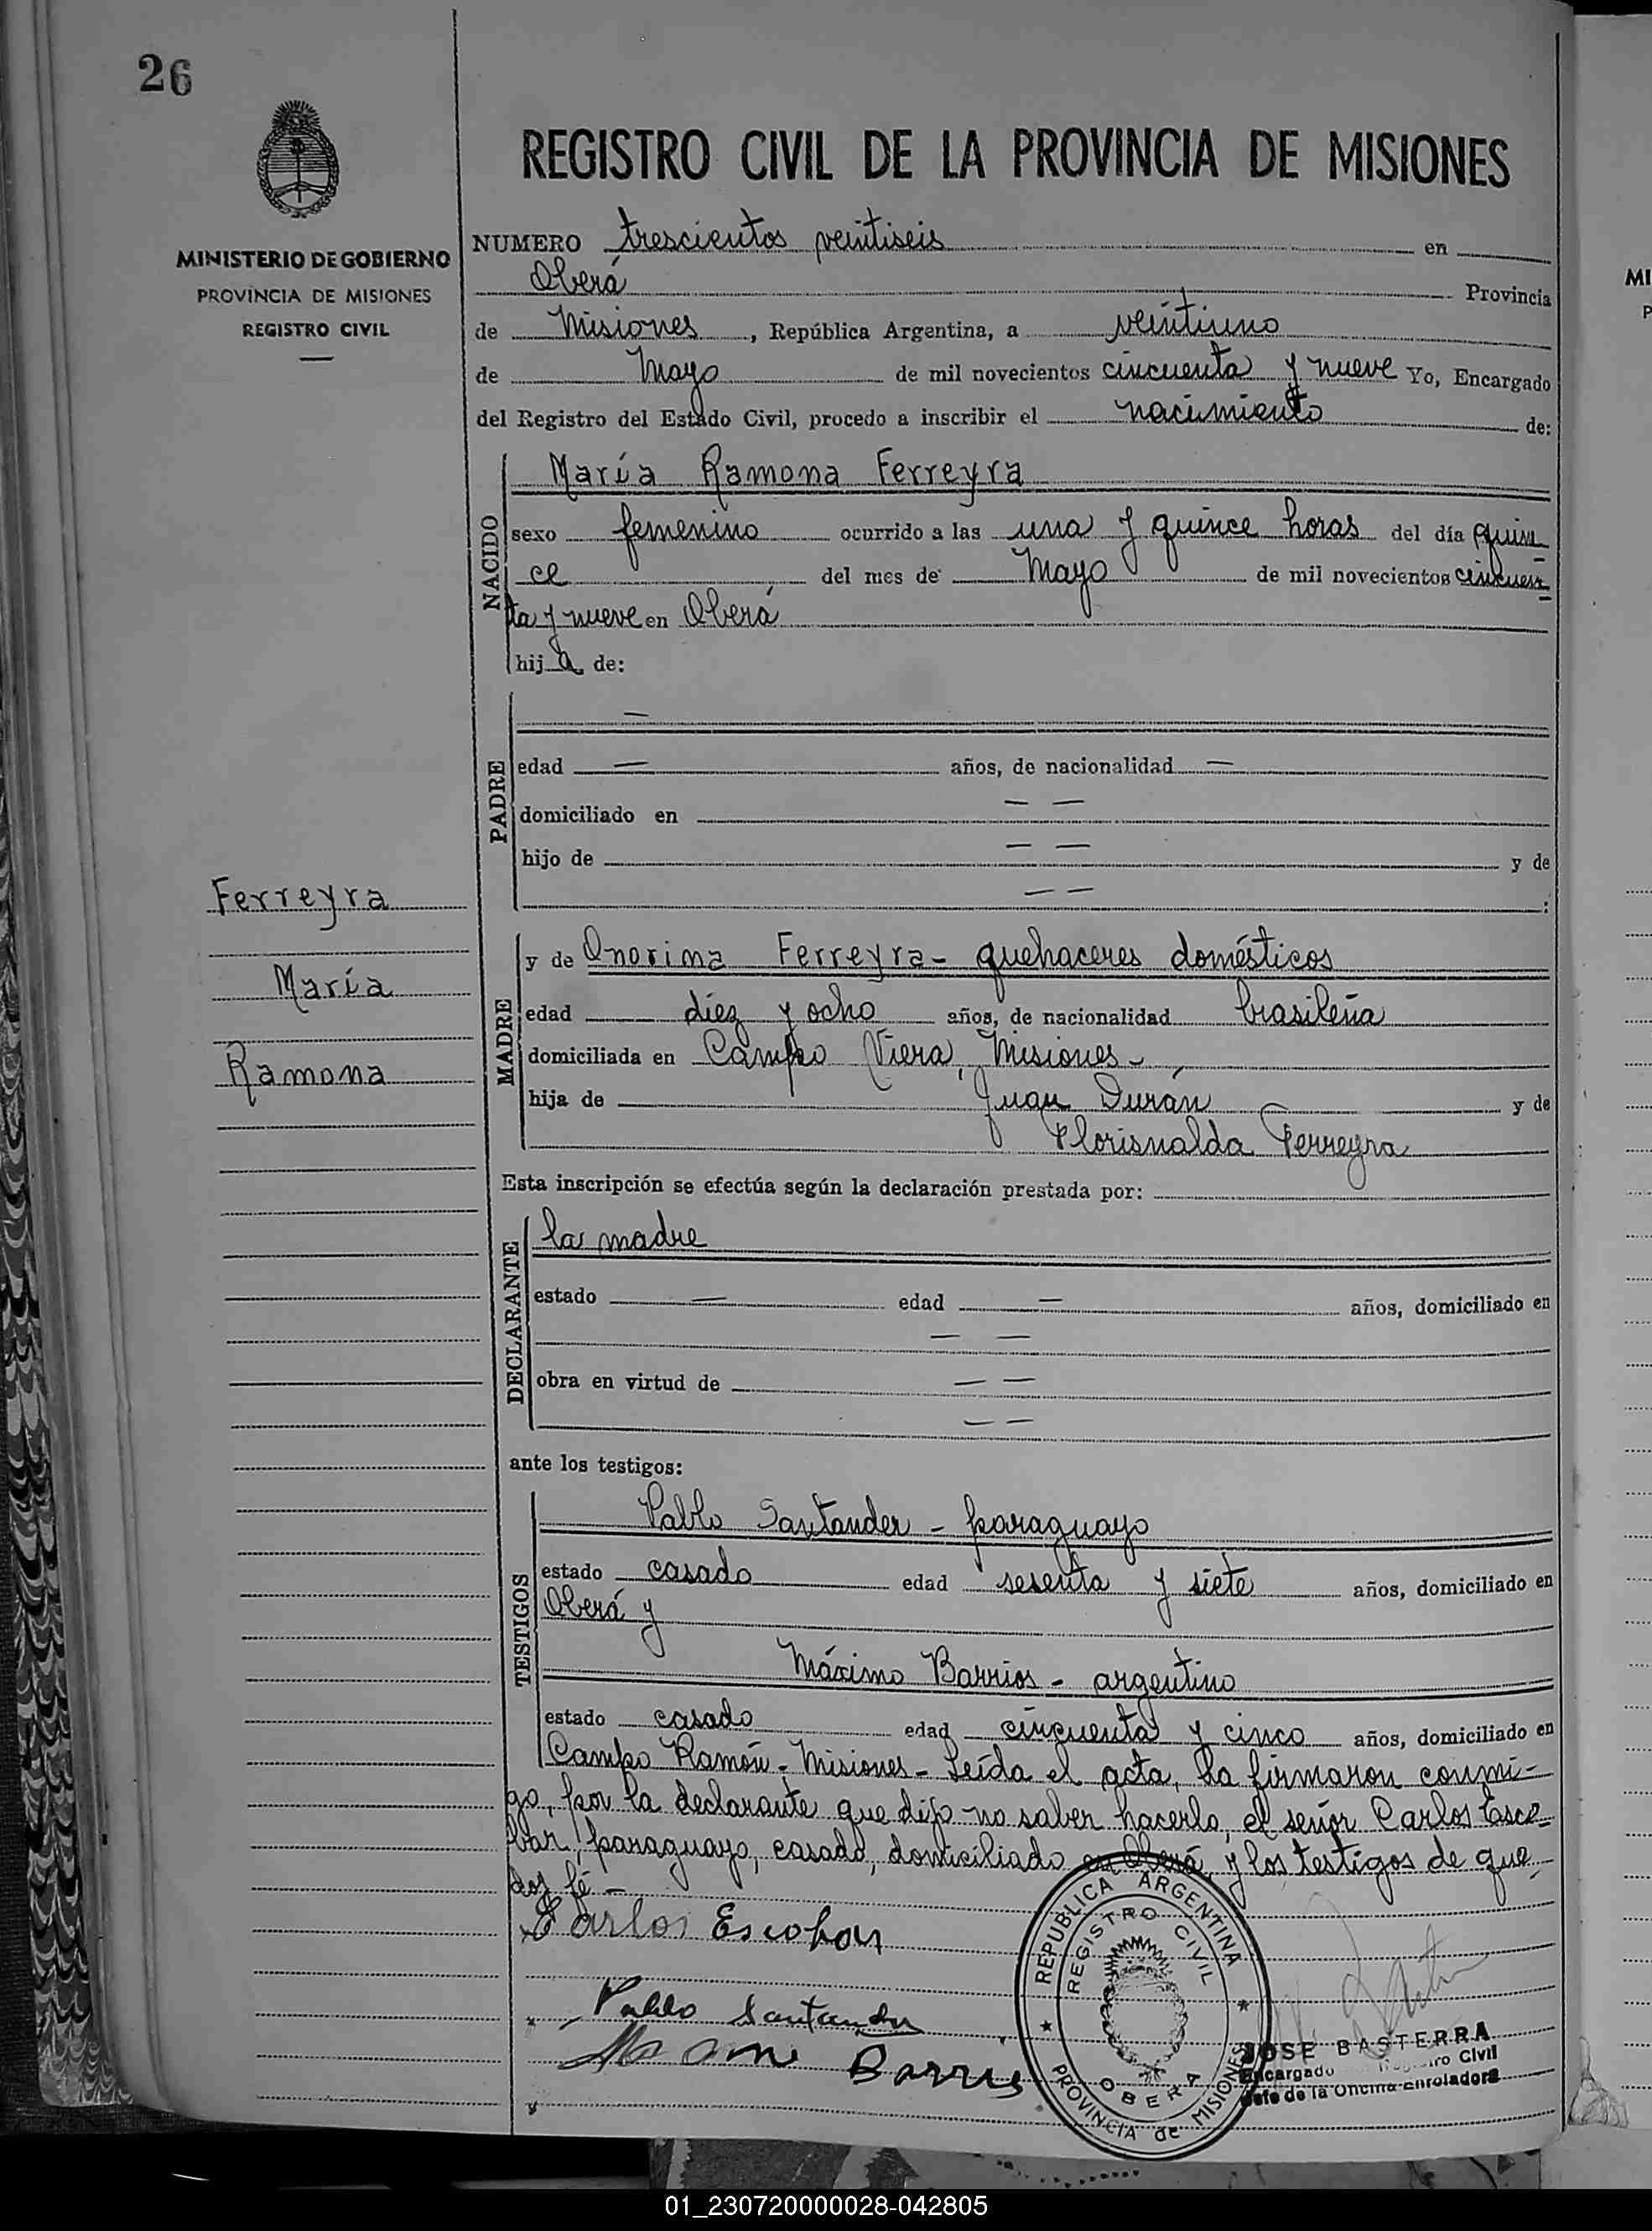 26
REGISTRO CIVIL DE LA PROVINCIA DE MISIONES
MINISTERIO DE GOBIERNO
PROVINCIA DE MISIONES
REGISTRO CIVIL
NUMERO trescientos veintiseis en
Oberá Provincia
de Misiones, República Argentina, a veintiuno
de Mayo de mil novecientos cincuenta y nueve Yo, Encargado
del Registro del Estado Civil, procedo a inscribir el nacimiento de:
NACIDO
María Ramona Ferreyra
sexo femenino ocurrido a las una y quince horas del día quin
ce del mes de Mayo de mil novecientos cincuen
ta y nueve en Oberá
hija de:
PADRE
—
edad — años, de nacionalidad —
domiciliado en — —
hijo de — — y de
— — :
Ferreyra
María
Ramona
MADRE
y de Onorina Ferreyra - quehaceres domésticos
edad diez y ocho años, de nacionalidad brasileña
domiciliada en Campo Viera, Misiones -
hija de Juan Durán y de
Florisnalda Ferreyra
Esta inscripción se efectúa según la declaración prestada por:
DECLARANTE
la madre
estado — edad — años, domiciliado en
— —
obra en virtud de — —
— —
ante los testigos:
TESTIGOS
Pablo Santander - paraguayo
estado casado edad sesenta y siete años, domiciliado en
Oberá y
Máximo Barrios - argentino
estado casado edad cincuenta y cinco años, domiciliado en
Campo Ramón - Misiones - Leída el acta, la firmaron conmi-
go, por la declarante que dijo no saber hacerlo, el señor Carlos Esco
bar, paraguayo, casado, domiciliado en Oberá, y los testigos de que
doy fé -
Carlos Escobar
Pablo Santander
Barrios
REPUBLICA ARGENTINA
REGISTRO CIVIL
OBERA
PROVINCIA de MISIONES
JOSE BASTERRA
Encargado Registro Civil
Jefe de la Oficina Enroladora
MI
P
01_230720000028-042805